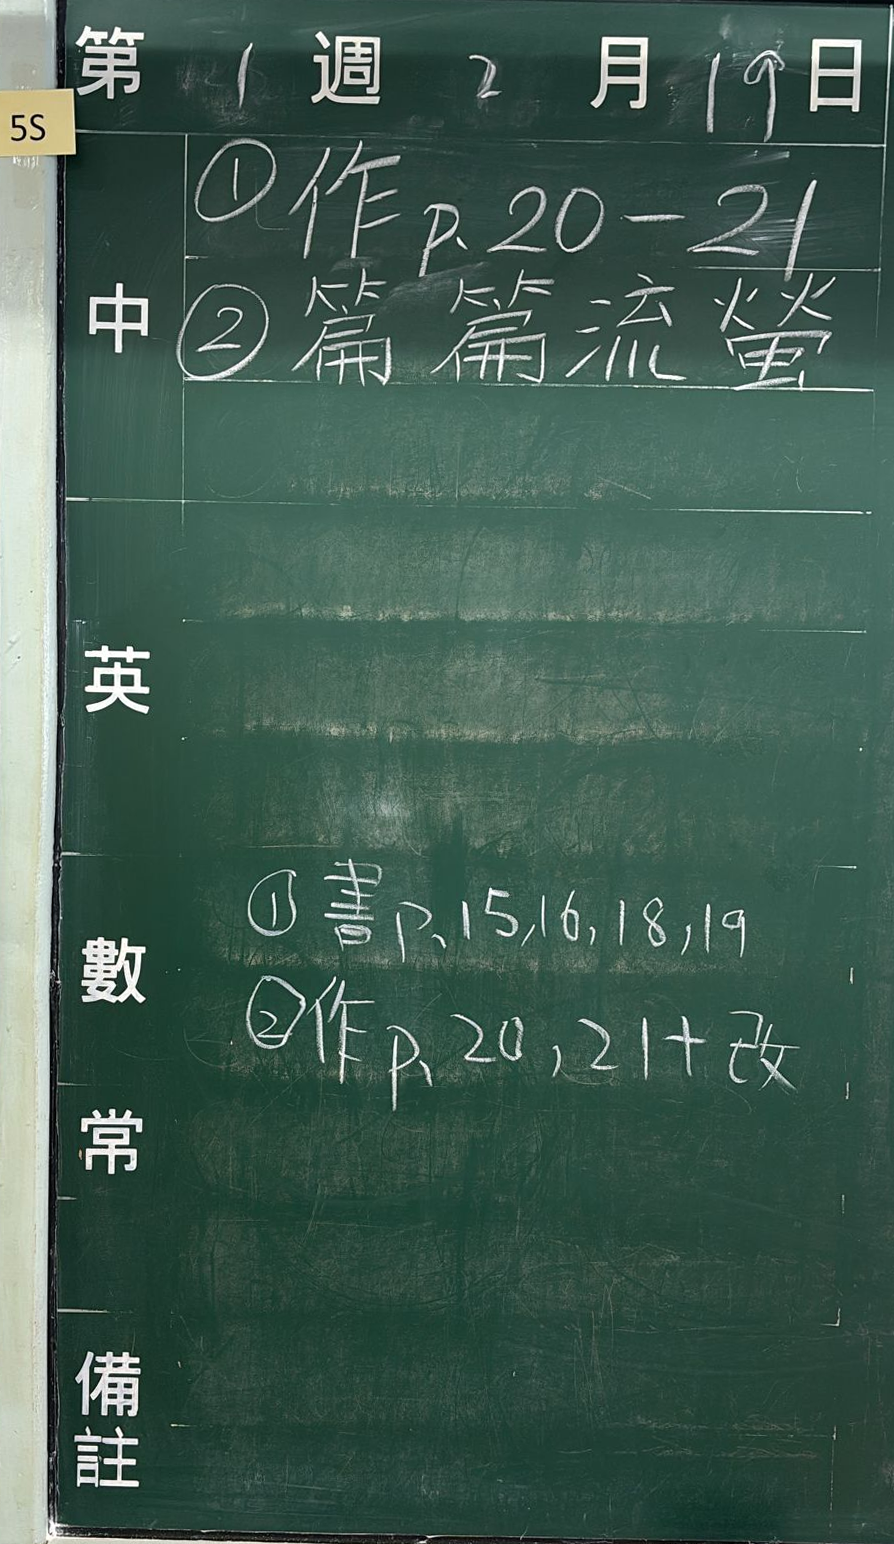 第 1 週 2 月 19 日
5S
中
① 作 p.20-21
② 篇篇流螢
英
數
① 書 p.15,16,18,19
② 作 p.20,21+改
常
備註